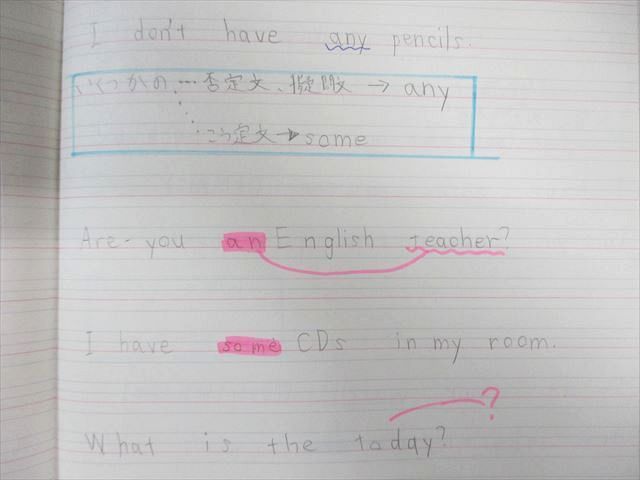 I don't have any pencils.
いくつかの…否定文、疑問文 → any
こう定文→some
Are you an English teacher?
I have some CDs in my room.
?
What is the today?